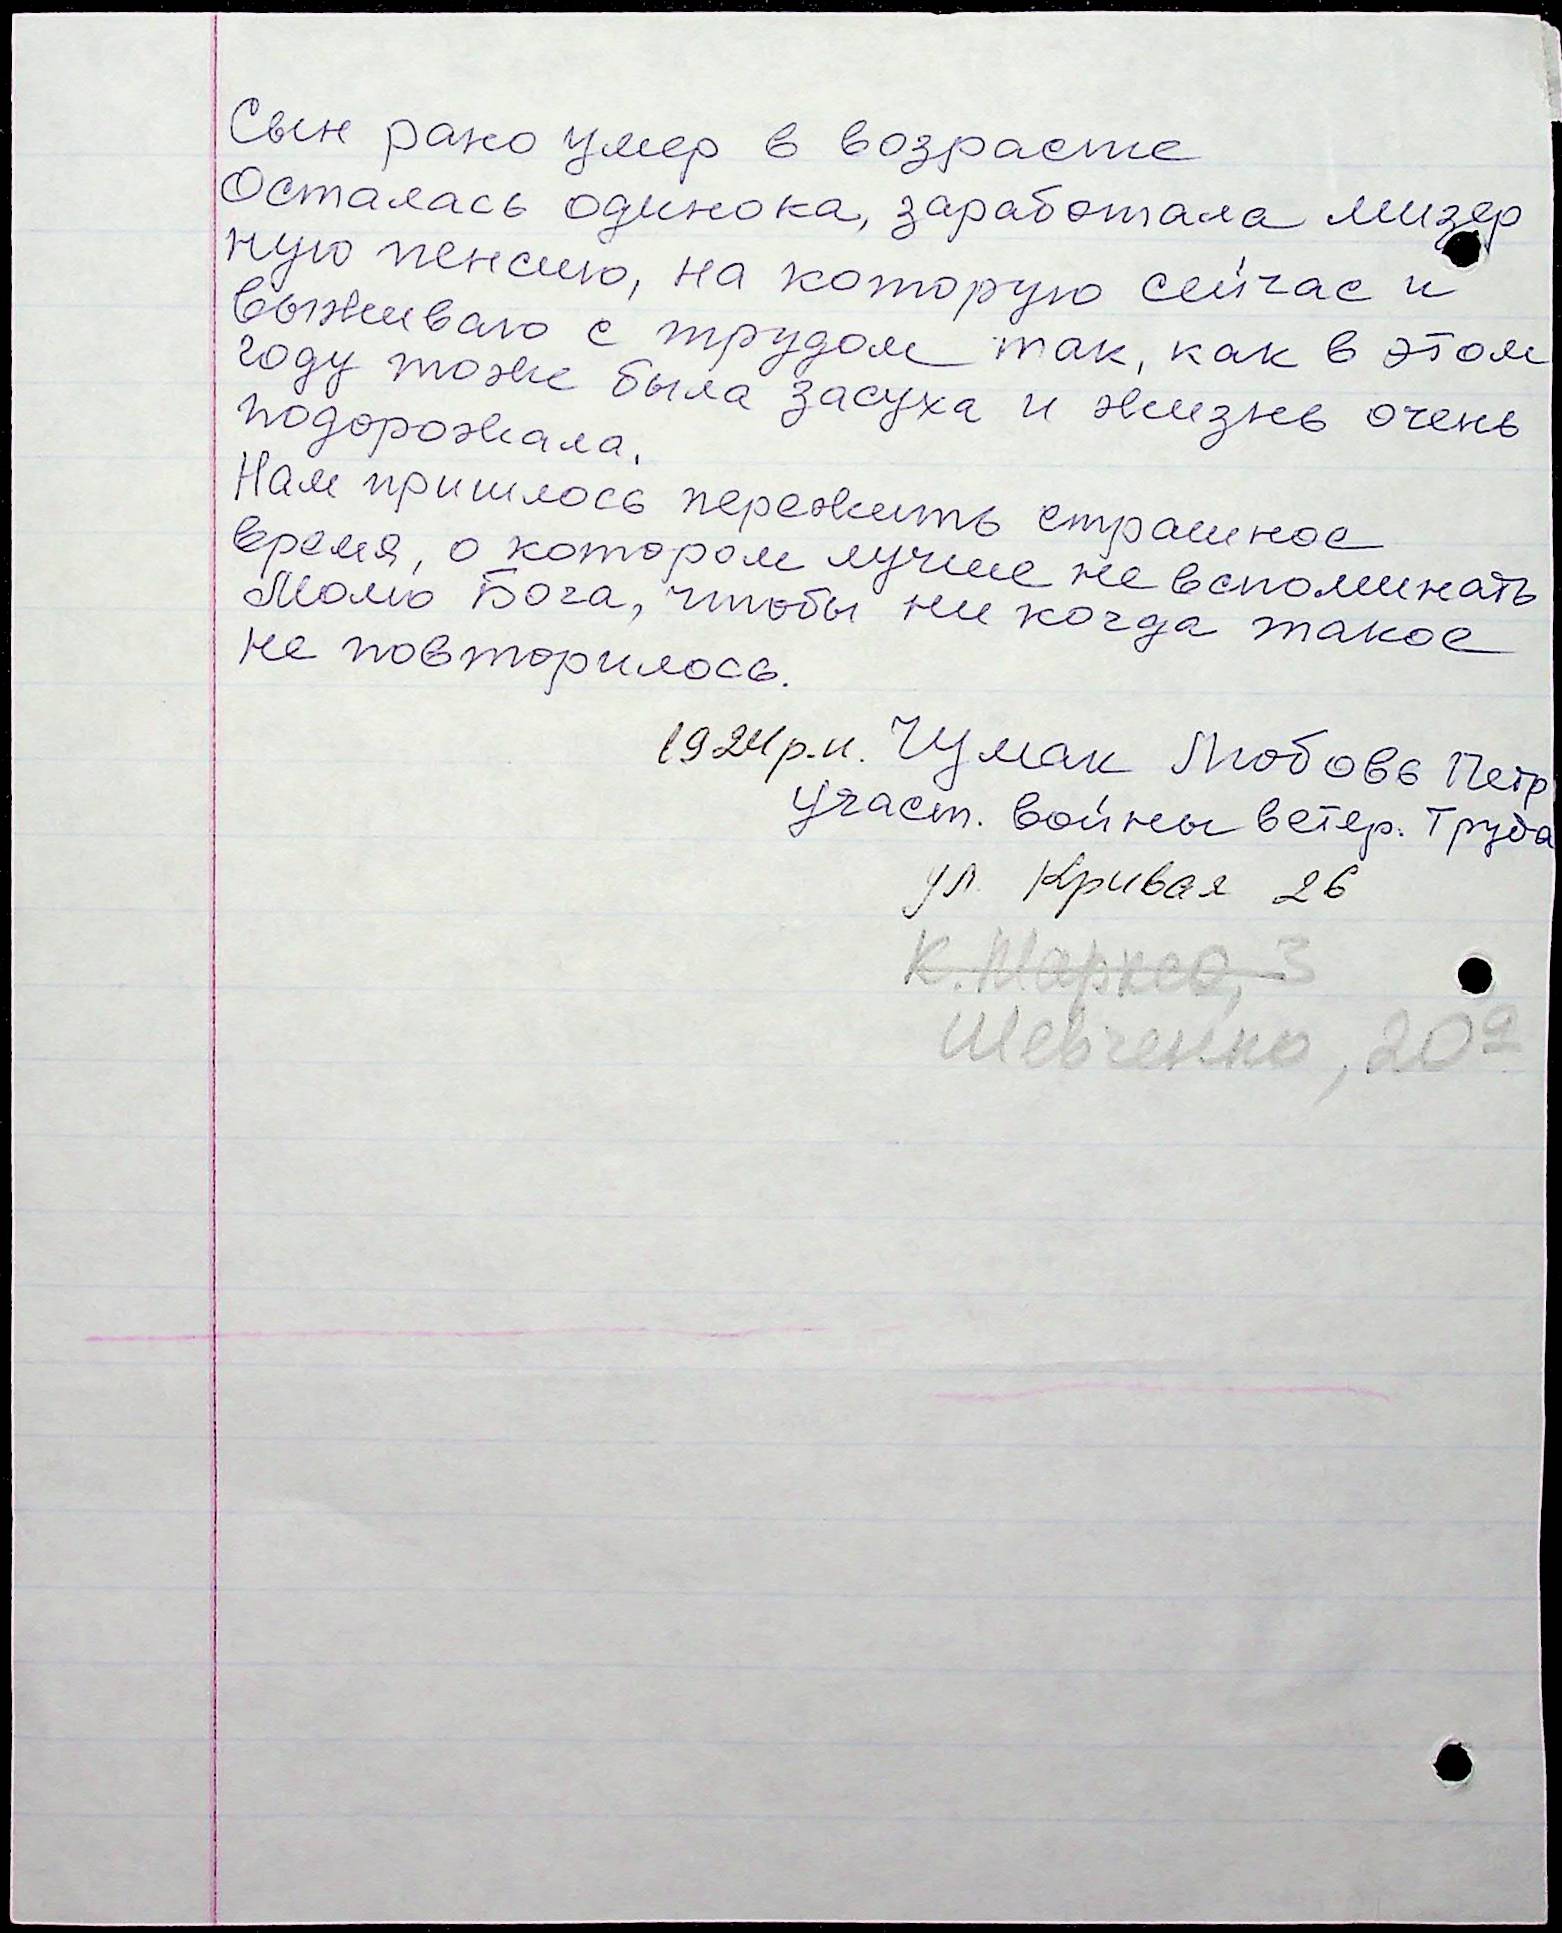 Сын рано умер в возрасте
Осталась одинока, заработала мизер
ную пенсию, на которую сейчас и
выживаю с трудом так, как в этом
году тоже была засуха и жизнь очень
подорожала.
Нам пришлось пережить страшное
время, о котором лучше не вспоминать
Молю Бога, чтобы ни когда такое
не повторилось.
1924 р.н. Чумак Любовь Петр
Участ. войны ветер. Труда
ул. Кривая 26
К. Маркса, 3
Шевченко, 20а